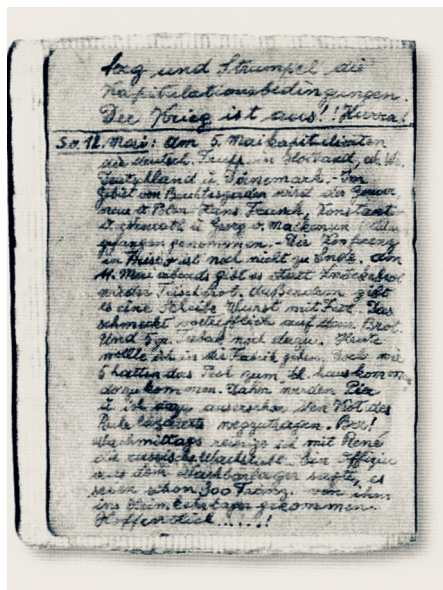 und Strumpel die
Kapitulationsbedingungen.
Der Krieg ist aus!! Hurra!
So. 12. Mai: Am 5. Mai kapitulierten
die deutsch. Trupp. in
u. Dänemark. - Im
Gebiet von Berchtesgaden wird der
neur v. Polen Hans Frank, Konstant
v. Neurath u. Georg v. Mackensen
gefangen genommen. - Die Konferenz
in ist noch nicht zu Ende. Am
11. Mai abends gibt es statt Knäckebrot
wieder Frischbrot. Außerdem gibt
es eine Scheibe Wurst mit Fett. Das
schmeckt vortrefflich auf dem Brot.
Und 5 gr. Tabak noch dazu. Heute
wollte ich in die Fabrik gehen. Doch wie
hatten das Pech zum
kommen. Daher werden
u. ich dazu ausersehen den Kot des
wegzutragen.
Nachmittags reinige ich mit René
die russische Wachstube. Ein Offizier
aus dem Nachbarlager sagte, es
seien schon 300 Franz. von ihm
ins Heimkehrlager gekommen.
Hoffentlich.....!